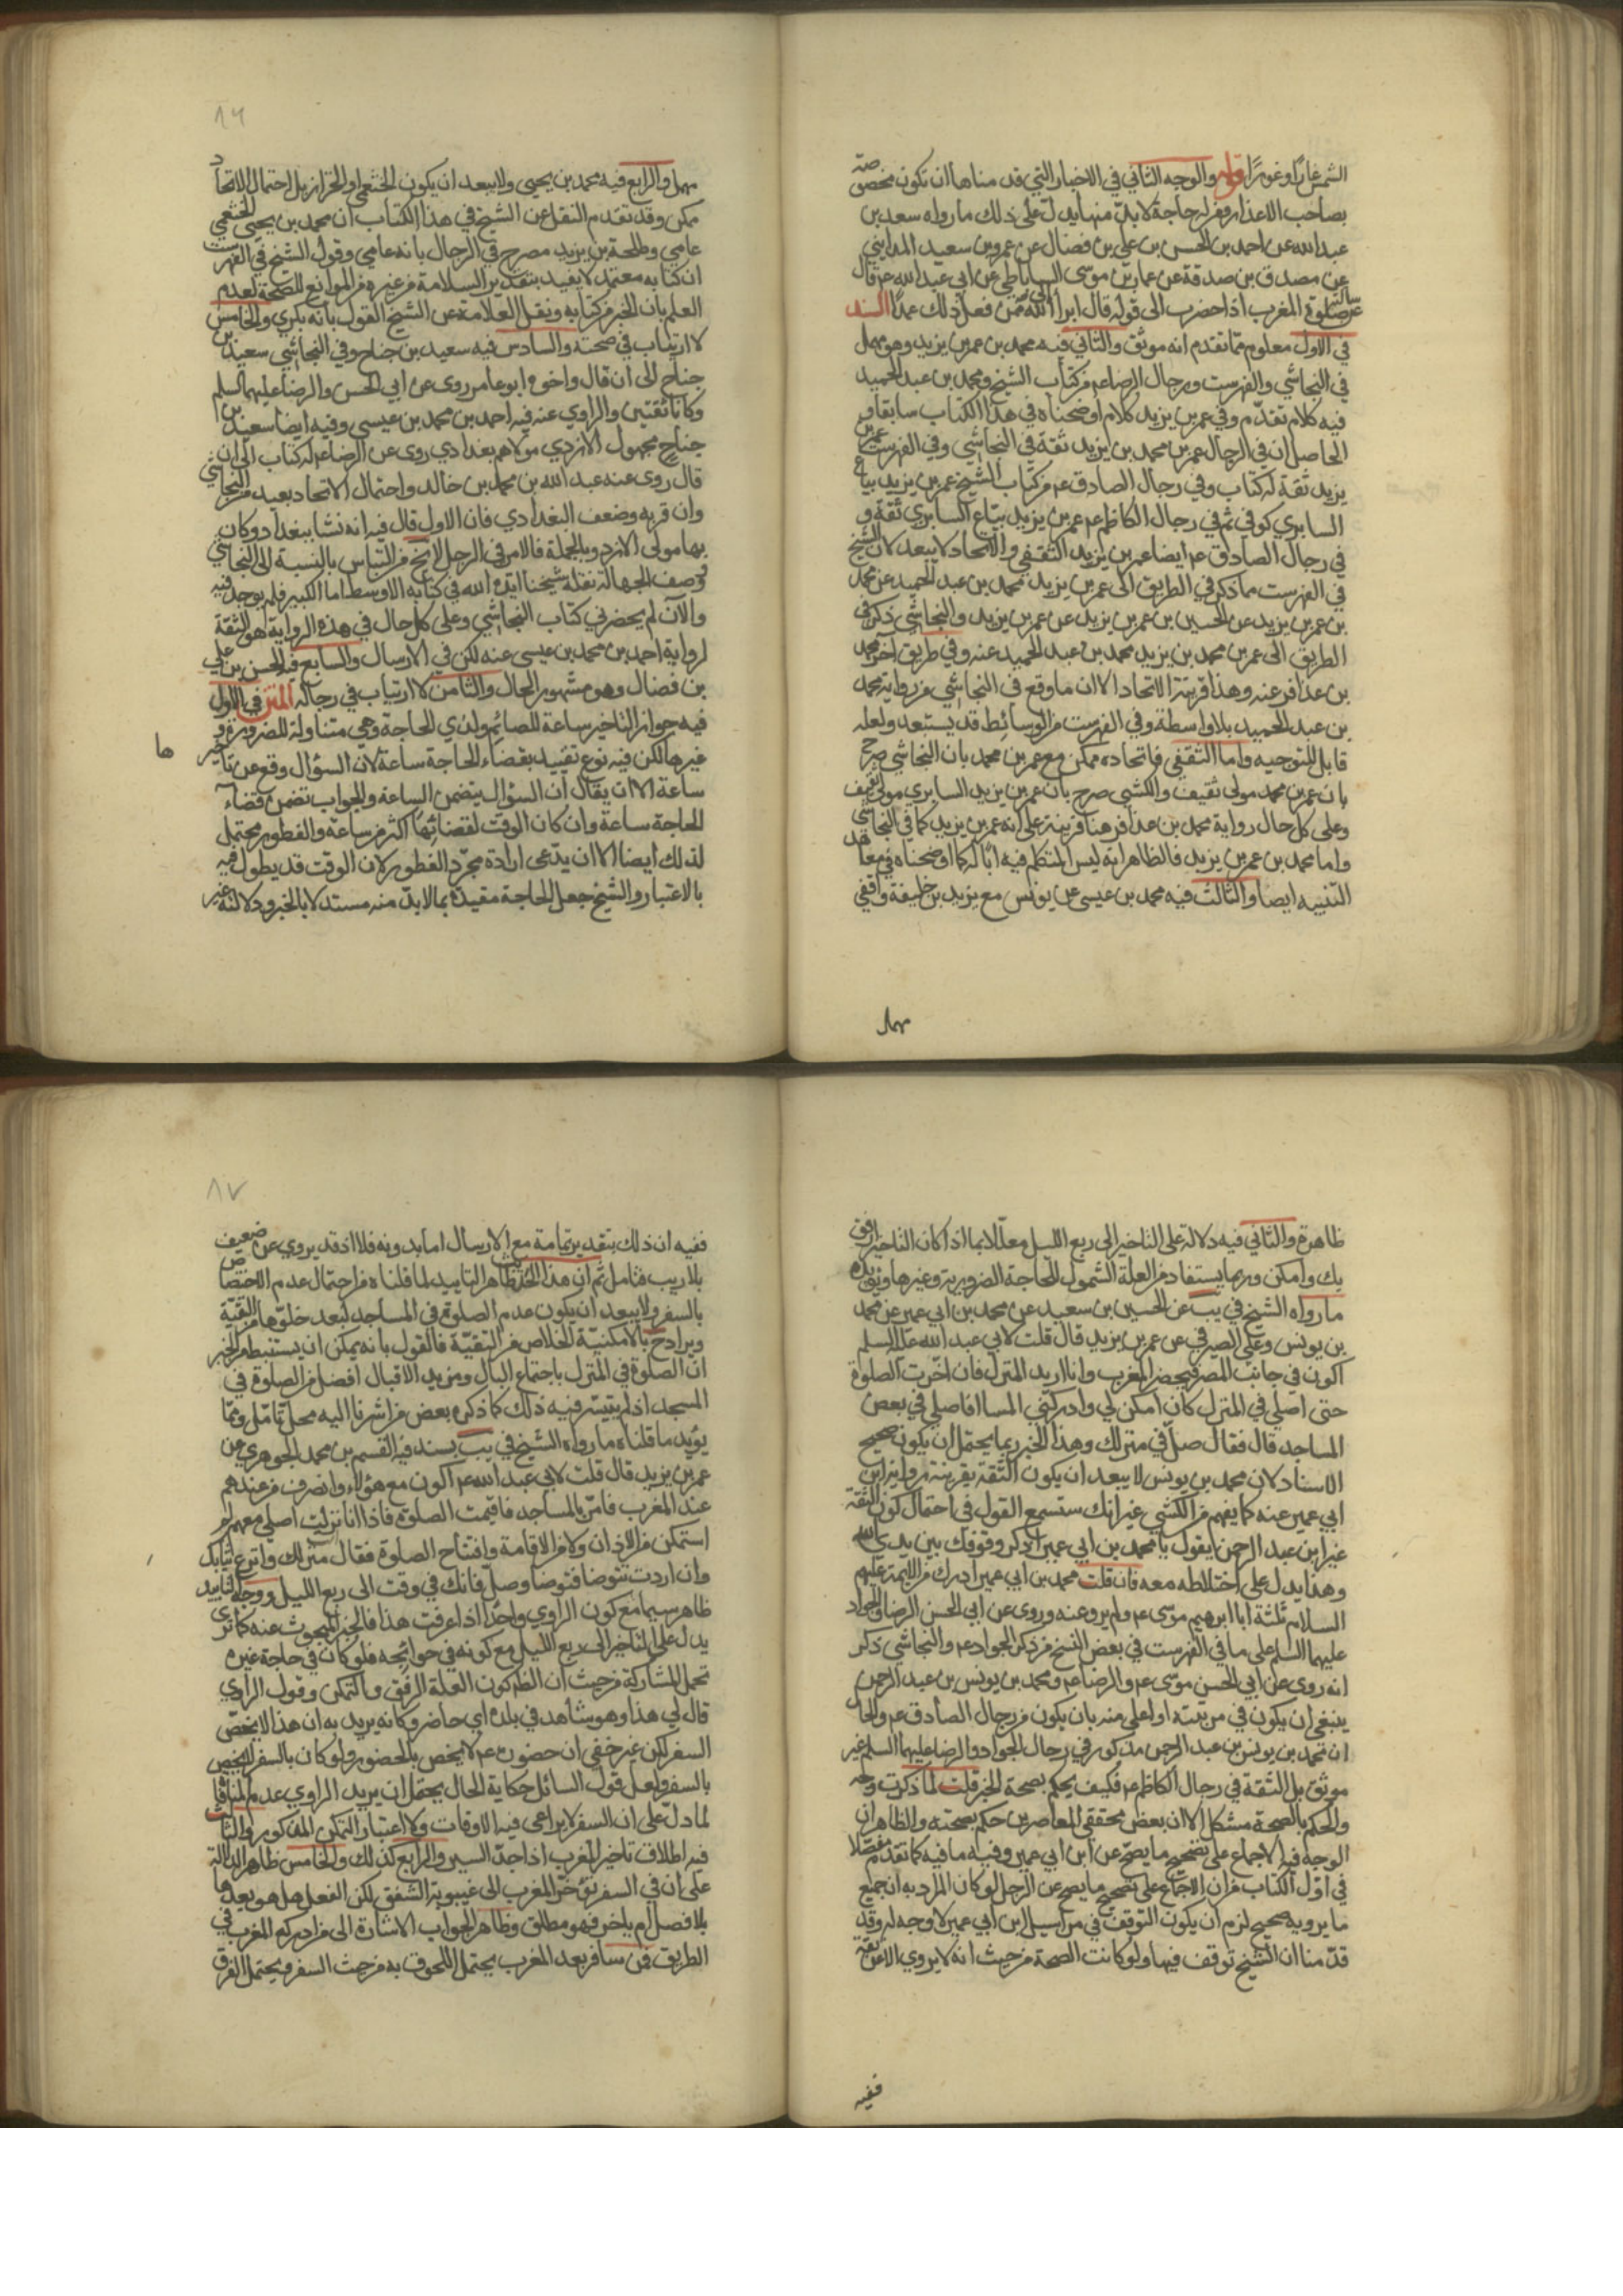 الشمس غارا وغورا قوله والوجه الثاني في الاخبار التي قد مناها ان تكون مخصوصة
بصاحب الاعذار ومن له حاجة لا بد منها يدل على ذلك ما رواه سعد بن
عبد الله عن احمد بن الحسن بن علي بن فضال عن عمرو بن سعيد المدايني
عن مصدق بن صدقة عن عمار بن موسى الساباطي عن ابي عبد الله ع قال
سالته عن صلوة المغرب اذا حضرت الى قوله قال ابرا الى الله ممن فعل ذلك عمدا السند
في الاول معلوم مما تقدم انه موثق والثاني فيه محمد بن عمر بن يزيد وهو مهمل
في النجاشي والفهرست ورجال الرضا ع من كتاب الشيخ ومحمد بن عبد الحميد
فيه كلام تقدم وفي عمر بن يزيد كلام اوضحناه في هذا الكتاب سابقا و
الحاصل ان في الرجال عمر بن محمد بن يزيد ثقة في النجاشي وفي الفهرست عمر بن
يزيد ثقة له كتاب وفي رجال الصادق ع من كتاب الشيخ عمر بن يزيد بياع
السابري كوفي ثم في رجال الكاظم ع عمر بن يزيد بياع السابري ثقة و
في رجال الصادق ع ايضا عمر بن يزيد الثقفي والاتحاد لا يبعد لان الشيخ
في الفهرست مما ذكر في الطريق الى عمر بن يزيد محمد بن عبد الحميد عن محمد
بن عمر بن يزيد عن الحسين بن عمر بن يزيد عن عمر بن يزيد والنجاشي ذكر في
الطريق الى عمر بن محمد بن يزيد محمد بن عبد الحميد عنه وفي طريق آخر محمد
بن عذافر عنه وهذا قرينة الاتحاد الا ان ما وقع في النجاشي من رواية محمد
بن عبد الحميد بلا واسطة وفي الفهرست من الوسائط قد يستبعد ولعله
قابل للتوجيه واما الثقفي فاتحاده ممكن مع عمر بن محمد بان النجاشي صرح
بان عمر بن محمد مولى ثقيف والكشي صرح بان عمر بن يزيد السابري مولى ثقيف
وعلى كل حال رواية محمد بن عذافر هنا قرينة على انه عمر بن يزيد كما في النجاشي
واما محمد بن عمر بن يزيد فالظاهر انه ليس المتكلم فيه ابا له كما اوضحناه في معاهد
التنبيه ايضا والثالث فيه محمد بن عيسى عن يونس مع يزيد بن خليفة واقفي
مهمل
٨٦
مهمل والرابع فيه محمد بن يحيى ولا يبعد ان يكون الخثعمي او الخزاز بل احتمال الاتحاد
ممكن وقد تقدم النقل عن الشيخ في هذا الكتاب ان محمد بن يحيى الخثعمي
عامي وطلحة بن يزيد مصرح في الرجال بانه عامي وقول الشيخ في الفهرست
ان كتابه معتمد لا يفيد بتقدير السلامة من غيره من الموانع للصحة لعدم
العلم بان الخبر من كتابه ونقل العلامة عن الشيخ القول بانه بتري والخامس
لا ارتياب في صحته والسادس فيه سعيد بن جناح وفي النجاشي سعيد بن
جناح الى ان قال واخوه ابو عامر روى عن ابي الحسن والرضا عليهما السلم
وكانا ثقتين والراوي عنه فيه احمد بن محمد بن عيسى وفيه ايضا سعيد بن
جناح مجهول الازدي مولاهم بغدادي روى عن الرضا ع له كتاب الى ان
قال روى عنه عبد الله بن محمد بن خالد واحتمال الاتحاد بعيد من النجاشي
وان قربه وضعف البغدادي فان الاول قال فيه انه نشا ببغداد وكان
بها مولى الازد وبالجملة فالامر في الرجل لا يخ من التباس بالنسبة الى النجاشي
ووصف الجهالة نقله شيخنا ايده الله في كتابه الاوسط اما الكبير فلم يوجد فيه
والآن لم يحضرني كتاب النجاشي وعلى كل حال في هذه الرواية هو الثقة
لرواية احمد بن محمد بن عيسى عنه لكن في الارسال والسابع فيه الحسن بن علي
بن فضال وهو مشهور الحال والثامن لا ارتياب في رجاله المتن في الاول
فيه جواز التاخير ساعة للصائم ولذي الحاجة وهي متناولة للضرورة و
غيرها لكن فيه نوع تقييد بقضاء الحاجة ساعة لان السؤال وقع عن تاخير
ها
ساعة الا ان يقال ان السؤال يتضمن الساعة والجواب تضمن قضاء
الحاجة ساعة وان كان الوقت لقضائها اكثر من ساعة والفطور محتمل
لذلك ايضا الا ان يدعى ارادة مجرد الفطور لان الوقت قد يطول فيه
بالاعتبار والشيخ جعل الحاجة مقيدة بما لا بد منه مستدلا بالخبر ودلالته غير
ظاهرة والثاني فيه دلالة على التاخير الى ربع الليل معللا بما اذا كان التاخير ارفق
بك وامكن وربما يستفاد من العلة الشمول للحاجة الضرورية وغيرها ويؤيده
ما رواه الشيخ في يب عن الحسين بن سعيد عن محمد بن ابي عمير عن محمد
بن يونس وعلي الصيرفي عن عمر بن يزيد قال قلت لابي عبد الله عليه السلم
اكون في جانب المصر فيحضر المغرب وانا اريد المنزل فان اخرت الصلوة
حتى اصلي في المنزل كان امكن لي وادركني المسا افاصلي في بعض
المساجد قال فقال صل في منزلك وهذا الخبر ربما يحتمل ان يكون صحيح
الاسناد لان محمد بن يونس لا يبعد ان يكون الثقة بقرينة رواية ابن
ابي عمير عنه كما يفهم من الكشي غير انك ستسمع القول في احتمال كون الثقة
غير ابن عبد الرحمن يقول يا محمد بن ابي عمير اذكر وقوفك بين يدي الله
وهذا يدل على اختلاطه معه فان قلت محمد بن ابي عمير ادرك من الايمة عليهم
السلام ثلثة ابا ابرهيم موسى ع ولم يرو عنه وروى عن ابي الحسن الرضا والجواد
عليهما السلم على ما في الفهرست في بعض النسخ من ذكر الجواد ع والنجاشي ذكر
انه روى عن ابي الحسن موسى ع والرضا ع ومحمد بن يونس بن عبد الرحمن
ينبغي ان يكون في مرتبته او اعلى منه بان يكون من رجال الصادق ع والحال
ان محمد بن يونس بن عبد الرحمن مذكور في رجال الجواد والرضا عليهما السلم غير
موثق بل الثقة في رجال الكاظم ع فكيف يحكم بصحة الخبر قلت لما ذكرت وجه
والحكم بالصحة مشكل الا ان بعض محققي المعاصرين حكم بصحته والظاهر ان
الوجه فيه الاجماع على تصحيح ما يصح عن ابن ابي عمير وفيه ما فيه كما تقدم مفصلا
في اول الكتاب من ان الاجماع على تصحيح ما يصح عن الرجل لو كان المراد به ان جميع
ما يرويه صحيح لزم ان يكون التوقف في مراسيل ابن ابي عمير لا وجه له وقد
قدمنا ان الشيخ توقف فيها ولو كانت الصحة من حيث انه لا يروي الا عن ثقة
ففيه
٨٧
ففيه ان ذلك بتقدير تمامه مع الارسال اما بدونه فلا اذ قد يروي عن ضعيف
بلا ريب فتامل ثم ان هذا الخبر ظاهر التاييد لما قلناه من احتمال عدم الاختصاص
بالسفر ولا يبعد ان يكون عدم الصلوة في المساجد لبعد خلوها من التقية
ويراد ح بالامكنية الخلاص من التقية فالقول بانه يمكن ان يستنبط من الخبر
ان الصلوة في المنزل باجتماع البال ومزيد الاقبال افضل من الصلوة في
المسجد اذا لم يتيسر فيه ذلك كما ذكره بعض من اشرنا اليه محل تامل ومما
يؤيد ما قلناه ما رواه الشيخ في يب بسند فيه القسم بن محمد الجوهري عن
عمر بن يزيد قال قلت لابي عبد الله ع اكون مع هؤلاء وانصرف من عندهم
عند المغرب فامر بالمساجد فاقيمت الصلوة فاذا انا نزلت اصلي معهم لم
استمكن من الاذان ولا من الاقامة وافتتاح الصلوة فقال ائت منزلك وانزع ثيابك
وان اردت تتوضا فتوضا وصل فانك في وقت الى ربع الليل ووجه التاييد
ظاهر سيما مع كون الراوي واحدا اذا عرفت هذا فالخبر المبحوث عنه كما ترى
يدل على التاخير الى ربع الليل مع كونه في حوائجه فلو كان في حاجة غيره
تحمل المشاركة من حيث ان الظ كون العلة الرفق والتمكن وقول الراوي
قال لي هذا وهو شاهد في بلده اي حاضر وكانه يريد به ان هذا لا يخص
السفر لكن غير خفي ان حضوره ع لا يخص بالحضور ولو كان بالسفر ليخص
بالسفر ولعل قول السائل حكاية الحال يحتمل ان يريد الراوي عدم المنافاة
لما دل على ان السفر لا يراعى فيه الاوقات ولا اعتبار التمكن المذكور والثالث
فيه اطلاق تاخير المغرب اذا جد السير والرابع كذلك والخامس ظاهر الدلالة
على ان في السفر تؤخر المغرب الى غيبوبة الشفق لكن الفعل هل هو بعدها
بلا فصل ام ياخر فهو مطلق وظاهر الجواب الاشارة الى من ادركه المغرب في
الطريق فمن سافر بعد المغرب يحتمل اللحوق به من حيث السفر ويحتمل الفرق